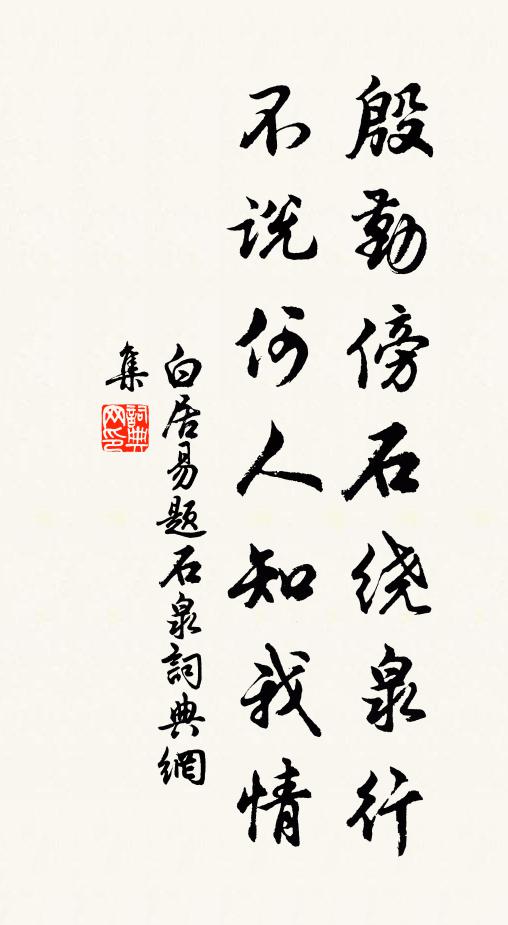 殷勤傍石绕泉行
不说何人知我情
白居易题石泉詞典網
集
詞典网印